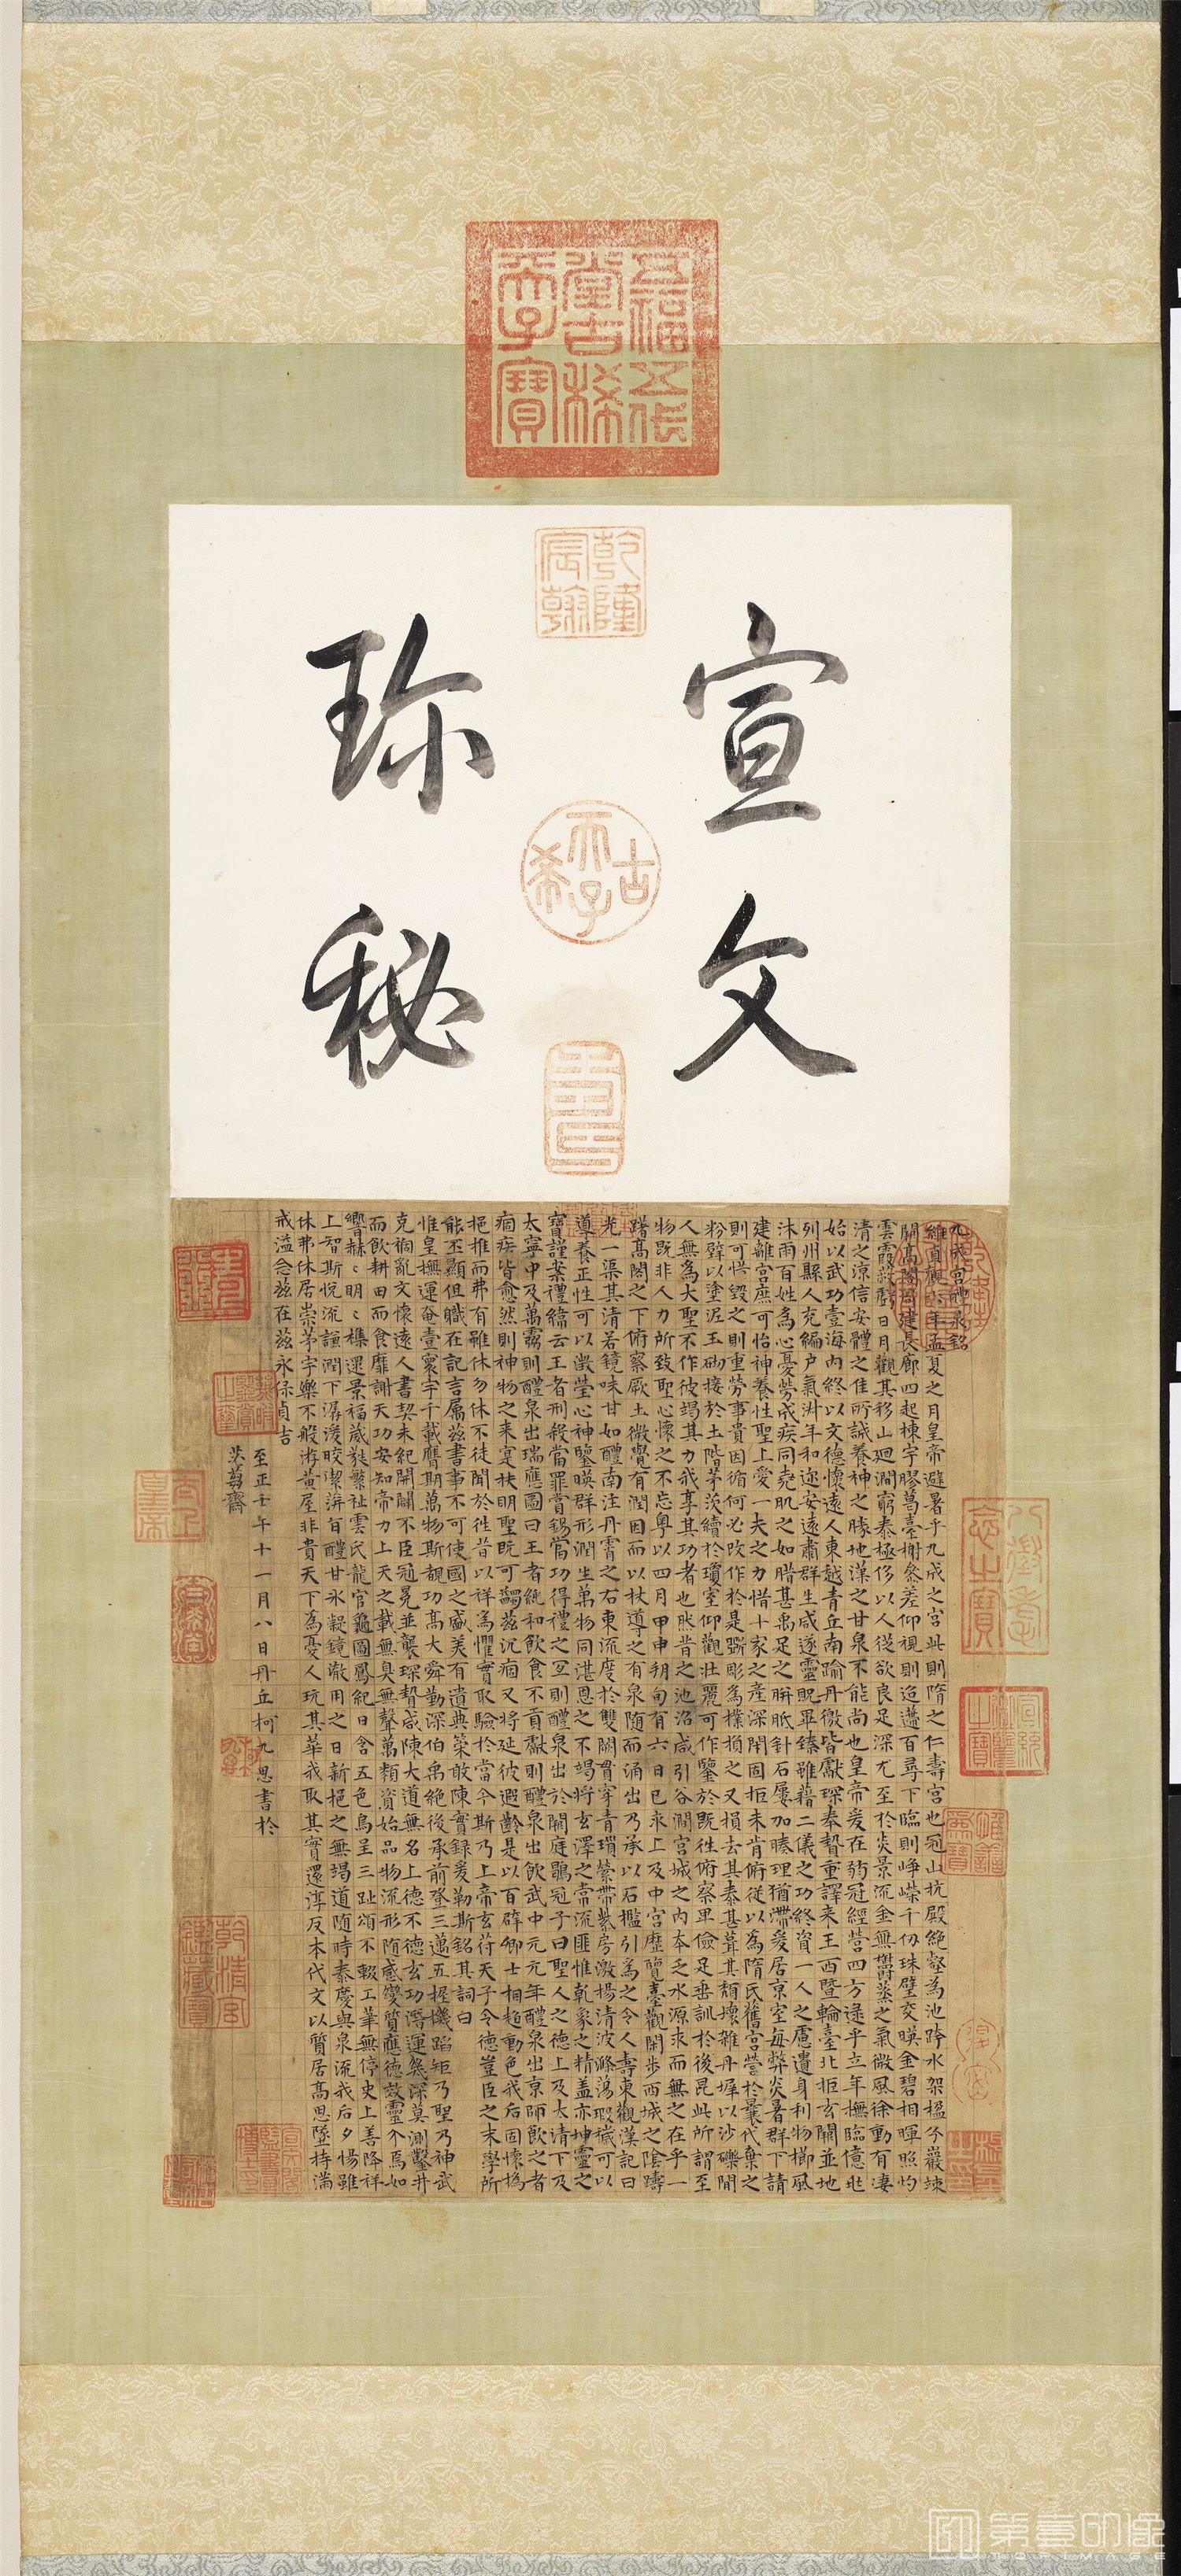 福五代
堂古稀
天子寶
乾隆
宸翰
宣文
珍秘
古希天子
壽
九成宮醴泉銘
維貞觀六年孟夏之月皇帝避暑乎九成之宮此則隋之仁壽宮也冠山抗殿絕壑為池跨水架楹分巖竦
闕高閣周建長廊四起棟宇膠葛臺榭參差仰視則迢遰百尋下臨則崢嶸千仞珠璧交暎金碧相暉照灼
雲霞蔽虧日月觀其移山迴澗窮泰極侈以人從欲良足深尤至於炎景流金無欝蒸之氣微風徐動有凄
清之涼信安體之佳所誠養神之勝地漢之甘泉不能尚也皇帝爰在弱冠經營四方逮乎立年撫臨億兆
始以武功壹海內終以文德懷遠人東越青丘南踰丹徼皆獻琛奉贄重譯来王西暨輪臺北拒玄闕並地
列州縣人充編戶氣淑年和迩安遠肅群生咸遂靈貺畢臻雖藉二儀之功終資一人之慮遺身利物櫛風
沐雨百姓為心憂勞成疾同堯肌之如腊甚禹足之胼胝針石屢加腠理猶滯爰居京室每弊炎暑群下請
建離宮庶可怡神養性聖上愛一夫之力惜十家之產深閉固拒未肯俯從以為隋氏舊宮營於曩代棄之
則可惜毀之則重勞事貴因循何必改作於是斲彫為樸損之又損去其泰甚葺其頹壞雜丹墀以沙礫間
粉壁以塗泥玉砌接於土階茅茨續於瓊室仰觀壯麗可作鑒於既往俯察卑儉足垂訓於後昆此所謂至
人無為大聖不作彼竭其力我享其功者也然昔之池沼咸引谷澗宮城之內本乏水源求而無之在乎一
物既非人力所致聖心懷之不忘粵以四月甲申朔旬有六日己亥上及中宮歷覽臺觀閑步西城之陰躊
躇高閣之下俯察厥土微覺有潤因而以杖導之有泉随而涌出乃承以石檻引為之令人壽東觀漢記曰
光一渠其清若鏡味甘如醴南注丹霄之右東流度於雙闕貫穿青瑣縈帶紫房激揚清波滌蕩瑕穢可以
導養正性可以澂瑩心神鑒暎群形潤生萬物同湛恩之不竭將玄澤之常流匪惟乾象之精盖亦坤靈之
寶謹案禮緯云王者刑殺當罪賞錫當功得禮之宜則醴泉出於闕庭鶡冠子曰聖人之德上及太清下及
太寧中及萬靈則醴泉出瑞應圖曰王者純和飲食不貢獻則醴泉出飲武中元元年醴泉出京師飲之者
痼疾皆愈然則神物之来寔扶明聖既可蠲茲沉痼又將延彼遐齡是以百辟卿士相趨動色我后固懷撝
挹推而弗有雖休勿休不徒聞於往昔以祥為懼實取驗於當今斯乃上帝玄符天子令德豈臣之末學所
能丕顯但職在記言属茲書事不可使國之盛美有遺典策敢陳實録爰勒斯銘其詞曰
惟皇撫運奄壹寰宇千載膺期萬物斯覩功高大舜勤深伯禹絕後承前登三邁五握機蹈矩乃聖乃神武
克禍亂文懷遠人書契未紀開闢不臣冠冕並襲琛贄咸陳大道無名上德不德玄功潛運幾深莫測鑿井
而飲耕田而食靡謝天功安知帝力上天之載無臭無聲萬類資始品物流形随感變質應德效靈介焉如
響赫〻明〻雜遝景福葳蕤繁祉雲氏龍官龜圖鳳紀日含五色烏呈三趾頌不輟工筆無停史上善降祥
上智斯悅流謙潤下潺湲皎潔蓱旨醴甘氷凝鏡澈用之日新挹之無竭道随時泰慶與泉流我后夕惕雖
休弗休居崇茅宇樂不般遊黃屋非貴天下為憂人玩其華我取其實還淳反本代文以質居高思墜持滿
戒溢念茲在茲永保貞吉
至正壬午十一月八日丹丘柯九思書於
八徵耄念之寶
太上皇帝
乾隆御覽之寶
宜子孫
乾清宮鑒藏寶
第壹印像
TOPIMAGE